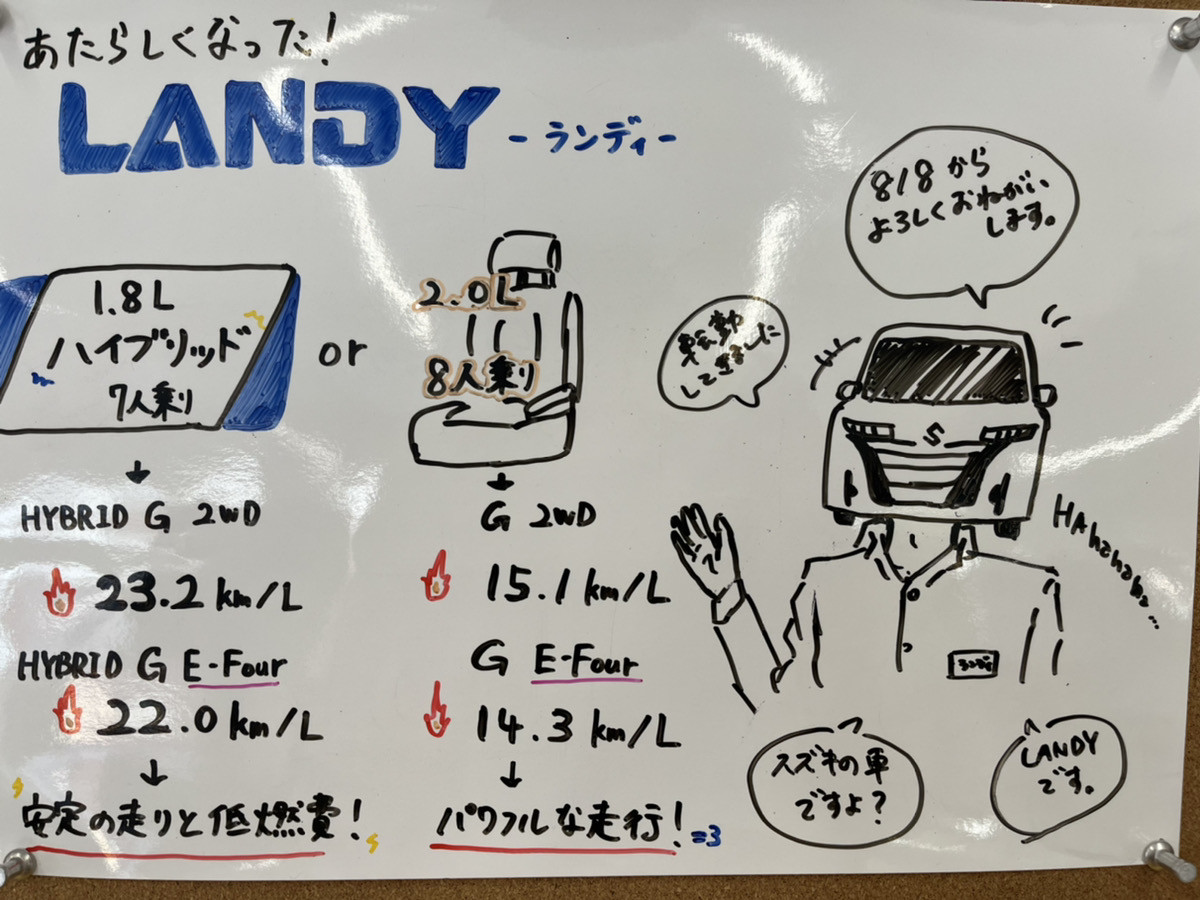 あたらしくなった!
LANDY
-ランディ-
1.8L
ハイブリッド
7人乗り
or
2.0L
8人乗り
HYBRID G 2WD
23.2 km/L
HYBRID G E-Four
22.0 km/L
安定の走りと低燃費!
G 2WD
15.1 km/L
G E-Four
14.3 km/L
パワフルな走行!=3
818から
よろしくおねがい
します。
転勤
してきました
S
HAhahaha...
ランディ
スズキの車
ですよ?
LANDY
です。